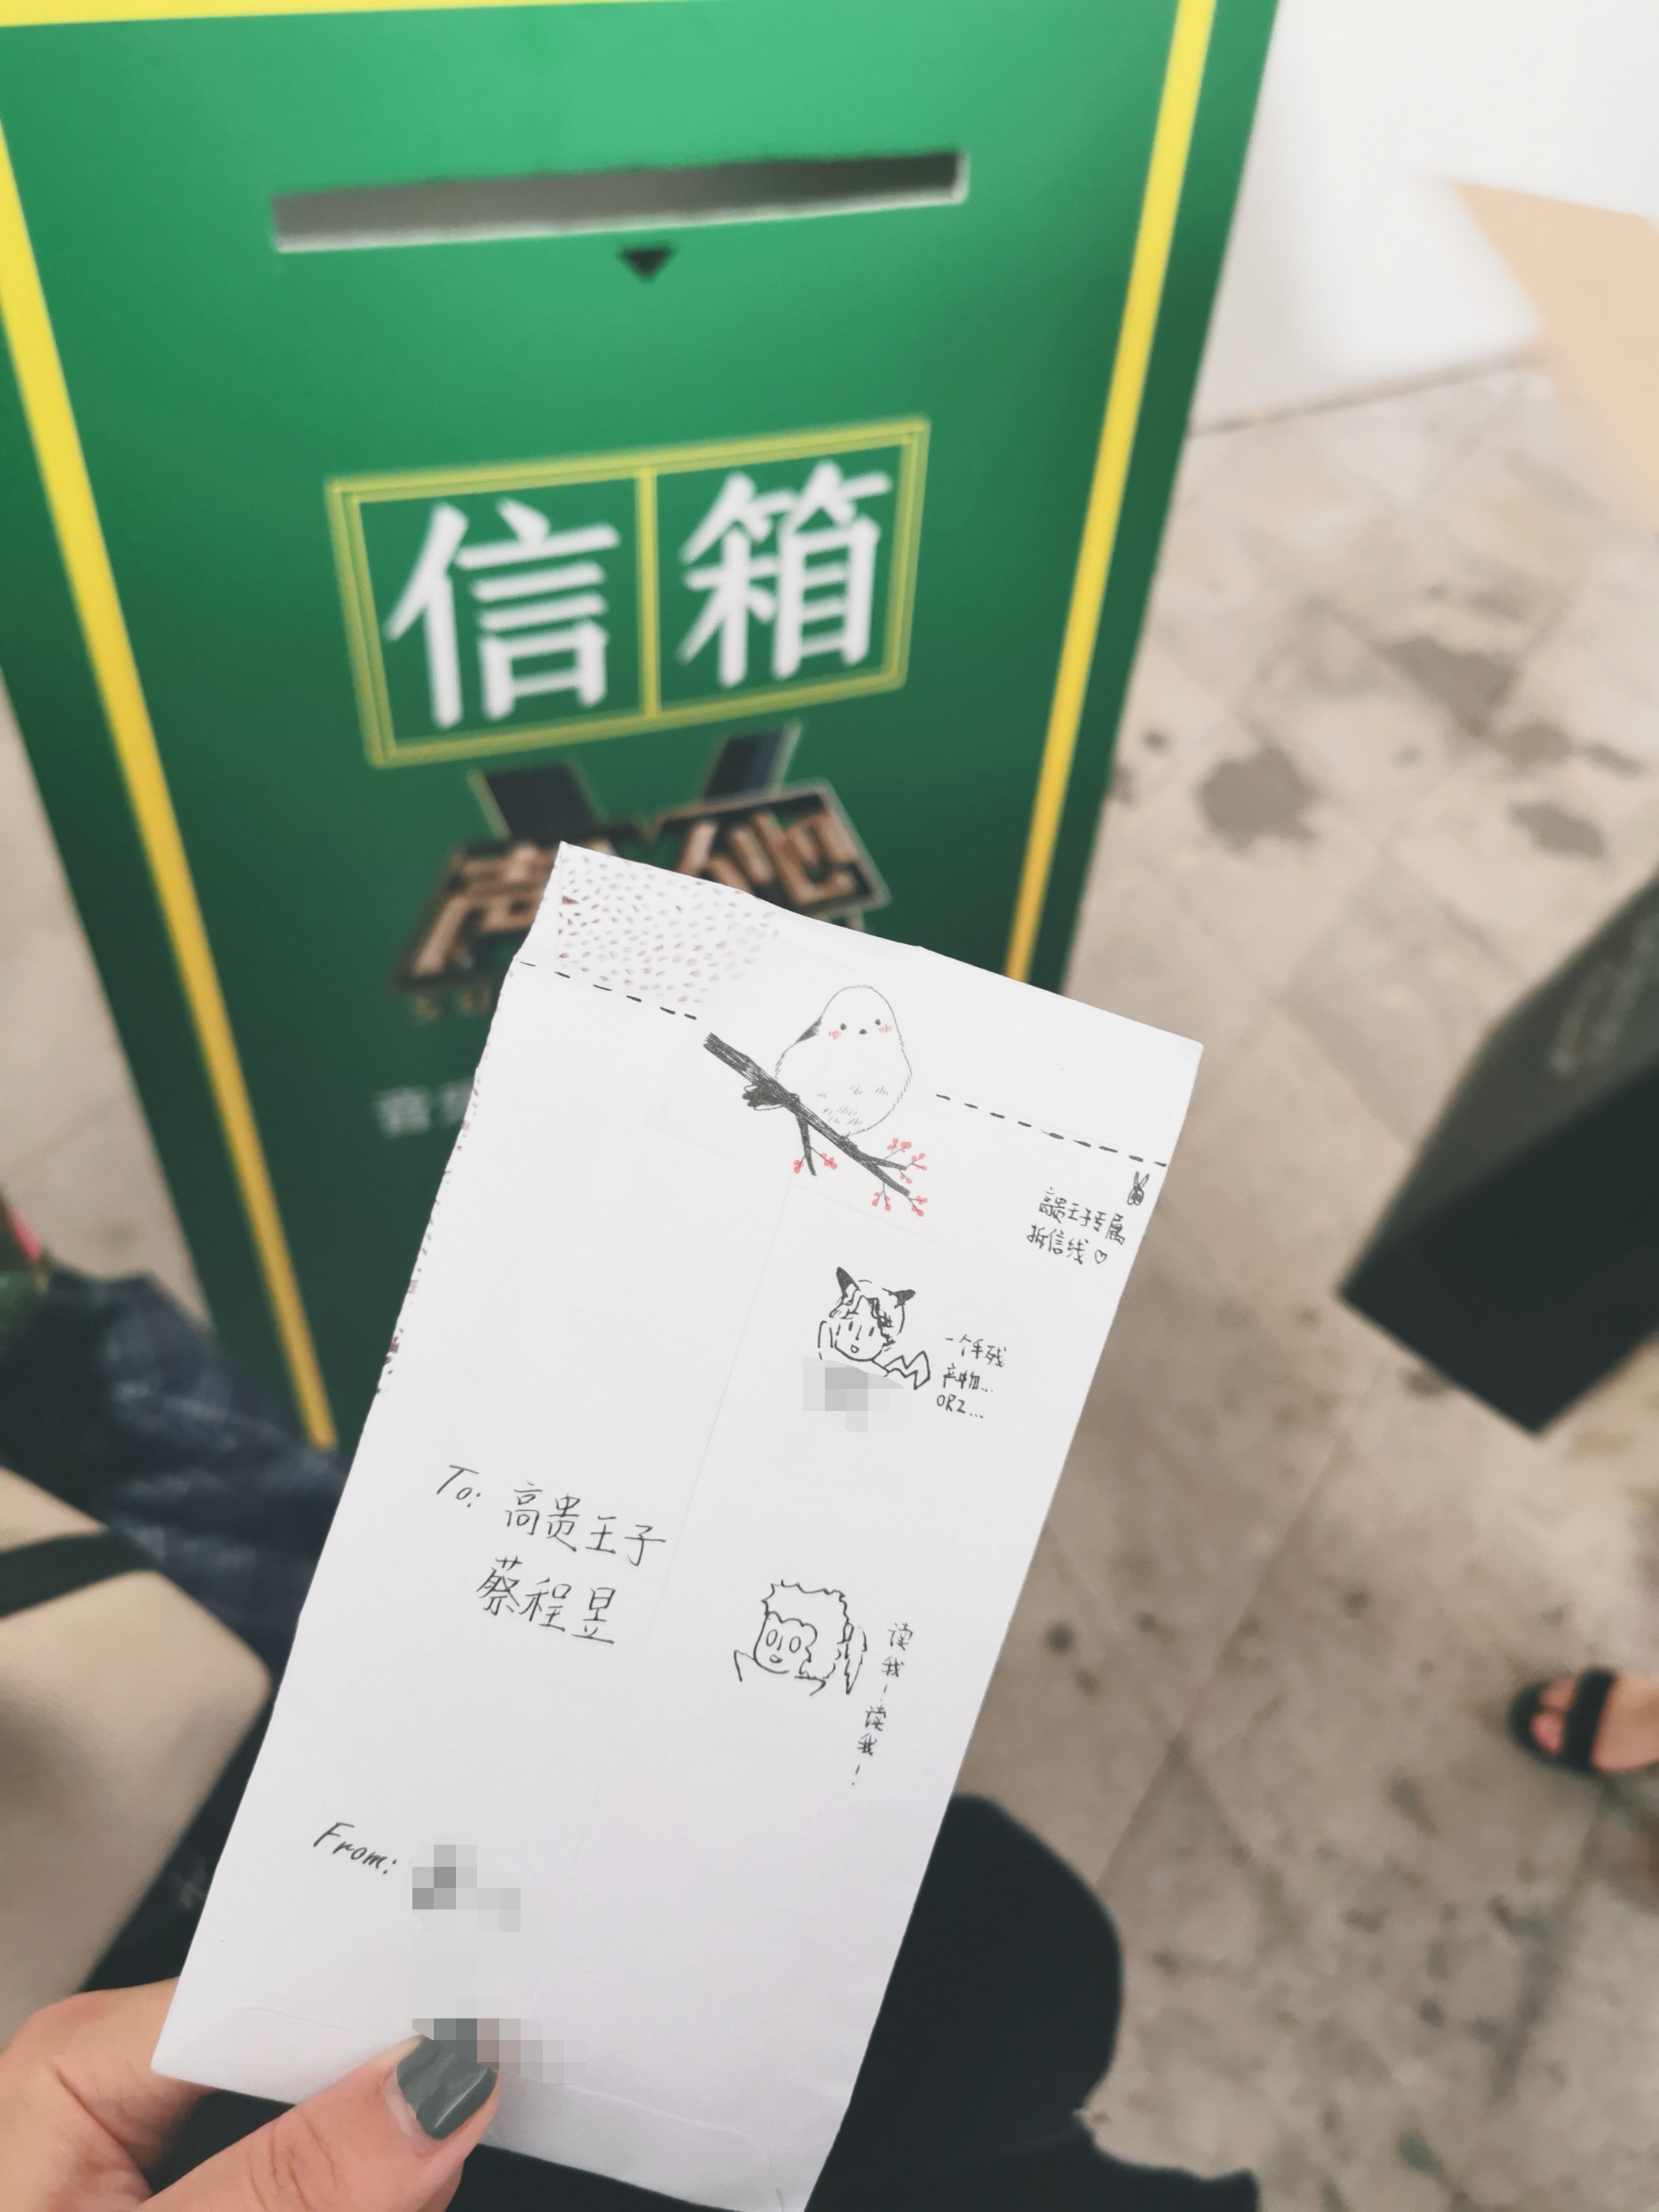 信箱
高贵王子专属
拆信线♡
一个手残
产物...
ORZ...
To: 高贵王子
蔡程昱
读我!读我!
From: